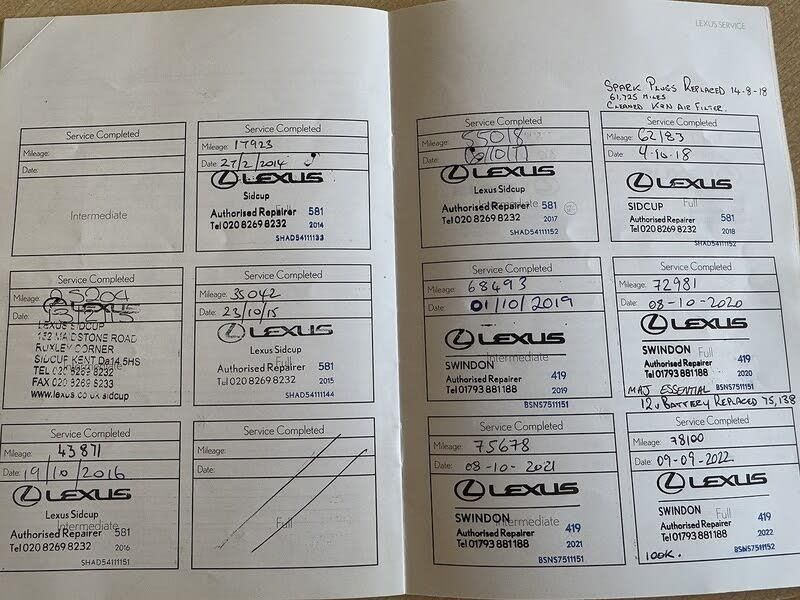 Service Completed
Mileage:
Date:
Intermediate
Service Completed
Mileage: 17923
Date: 27/2/2014
LEXUS
Sidcup
Full
Authorised Repairer 581
Tel 020 8269 8232 2014
SHAD54111133
Service Completed
Mileage:
Date:
LEXUS
LEXUS SIDCUP
152 MAIDSTONE ROAD
RUXLEY CORNER
SIDCUP KENT Da14 5HS
Intermediate
TEL 020 8269 8232
FAX 020 8269 8233
www.lexus.co.uk sidcup
Service Completed
Mileage: 35042
Date: 23/10/15
LEXUS
Lexus Sidcup
Full
Authorised Repairer 581
Tel 020 8269 8232 2015
SHAD54111144
Service Completed
Mileage: 43871
Date: 19/10/2016
LEXUS
Lexus Sidcup
Authorised Repairer 581
Intermediate
Tel 020 8269 8232 2016
SHAD54111151
Service Completed
Mileage:
Date:
Full
LEXUS SERVICE
SPARK PLUGS REPLACED 14-8-18
61,725 MILES
CLEANED K&N AIR FILTER.
Service Completed
Mileage: 55018
Date:
LEXUS
Lexus Sidcup
Intermediate
Authorised Repairer 581
Tel 020 8269 8232 2017
SHAD54111152
Service Completed
Mileage: 62183
Date: 4-10-18
LEXUS
SIDCUP Full
Authorised Repairer 581
Tel 020 8269 8232 2018
SHAD54111152
Service Completed
Mileage: 68493
Date: 01/10/2019
LEXUS
SWINDON
Intermediate
Authorised Repairer 419
Tel 01793 881188 2019
BSNS7511151
Service Completed
Mileage: 72981
Date: 08-10-2020
LEXUS
SWINDON Full
Authorised Repairer 419
Tel 01793 881188 2020
MAJ ESSENTIAL BSNS7511151
12v BATTERY REPLACED 75,138
Service Completed
Mileage: 75678
Date: 08-10-2021
LEXUS
SWINDON
Intermediate
Authorised Repairer 419
Tel 01793 881188 2021
BSNS7511151
Service Completed
Mileage: 78100
Date: 09-09-2022
LEXUS
SWINDON Full
Authorised Repairer 419
Tel 01793 881188 2022
100K. BSNS7511152